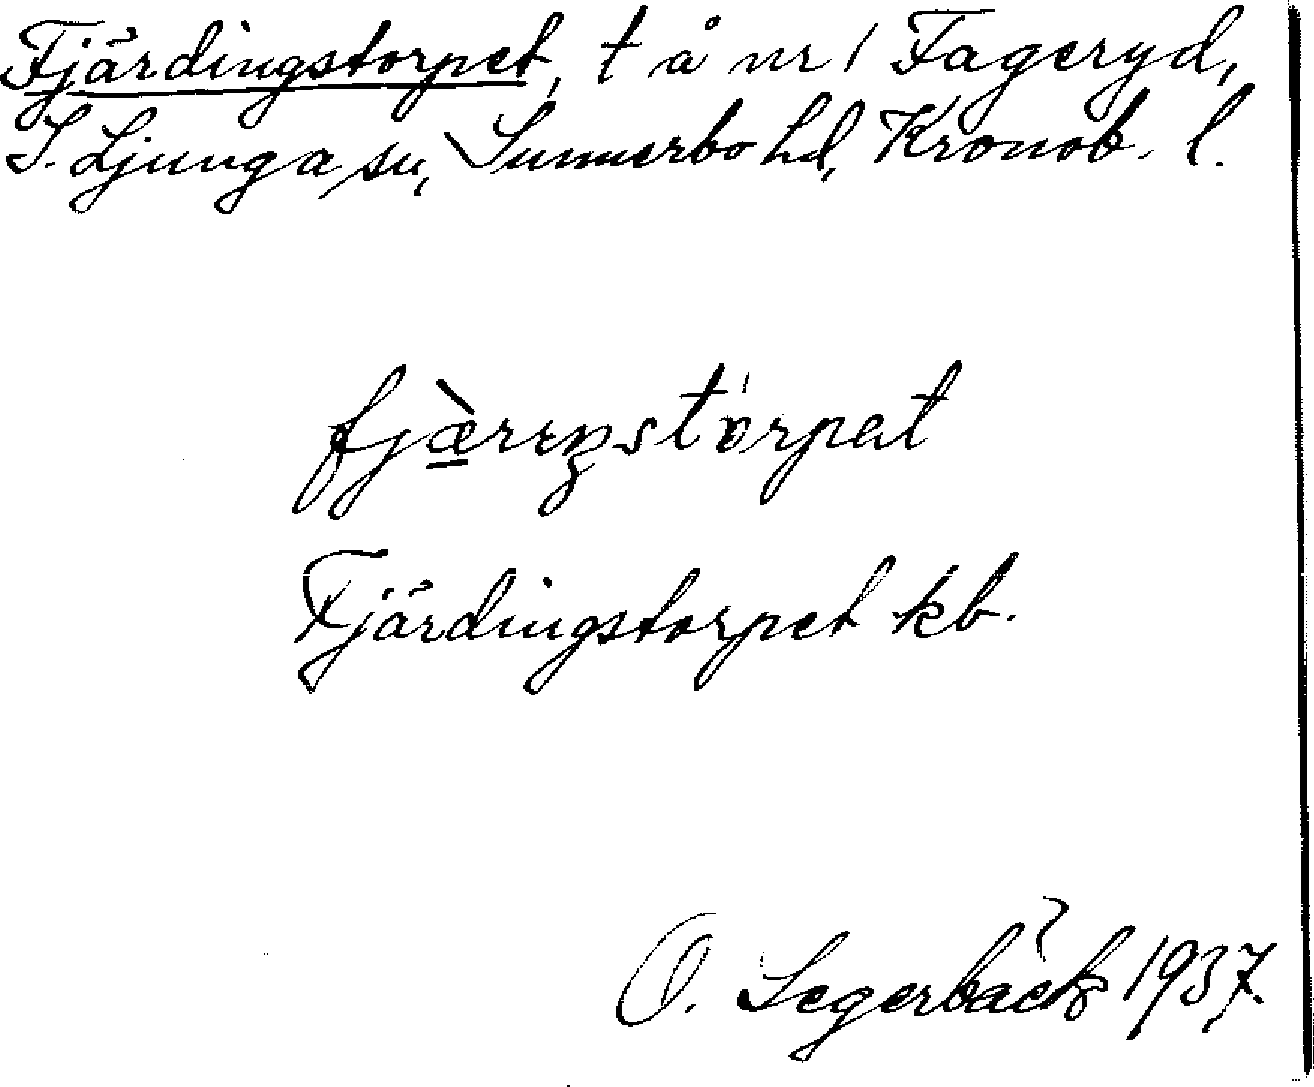 Fjärdingstorpet, t å nr 1 Fageryd,
S. Ljunga sn, Sunnerbo hd, Kronob. l.
fjæ̀rɪŋstorpət
Fjärdingstorpet kb.
O. Segerbäck 1937.